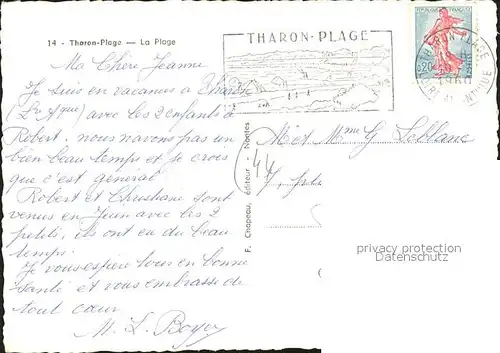 14 - Tharon-Plage — La Plage
Ma Chère Jeanne
Je suis en vacances à Tharon
(Lre Atque) avec les 2 enfants à
Robert, nous n'avons pas un
bien beau temps et je crois
que c'est général
Robert et Christiane sont
venus en Juin avec les 2
petits, ils ont eu du beau
temps.
Je vous espère tous en bonne
santé et vous embrasse de
tout cœur
M. L.
F. Chapeau, éditeur - Nantes
THARON-PLAGE
REPUBLIQUE FRANÇAISE
0,20
THARON PLAGE
LOIRE ATLANTIQUE
M et Mme G Leblanc
44
privacy protection
Datenschutz